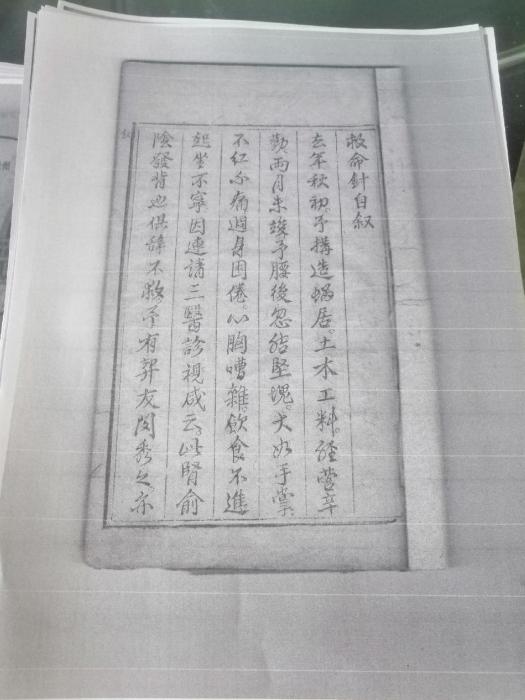 救命針自叙
去年秋初。予搆造蝸居。土木工料。經营辛
勤兩月未竣予腰後忽結堅塊。大如手掌
不红不痛週身困倦。心胸嘈雜。飲食不進
起坐不寧因連請三醫診視咸云。此腎俞
陰發背也俱辞不救。予有契友閔秀之亦